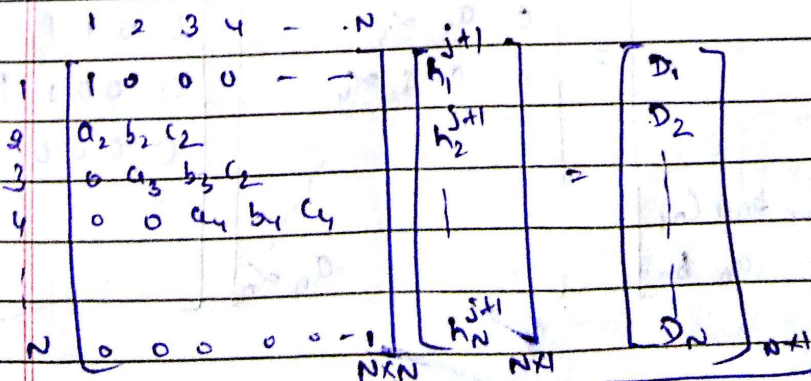 1 2 3 4 - . N
1 1 0 0 0 - - h₁^{j+1} D₁
2 a₂ b₂ c₂ h₂^{j+1} D₂
3 0 a₃ b₃ c₂ =
4 0 0 a₄ b₄ c₄
N 0 0 0 0 0 - 1 h_N^{j+1} D_N
N×N N×1 N×1